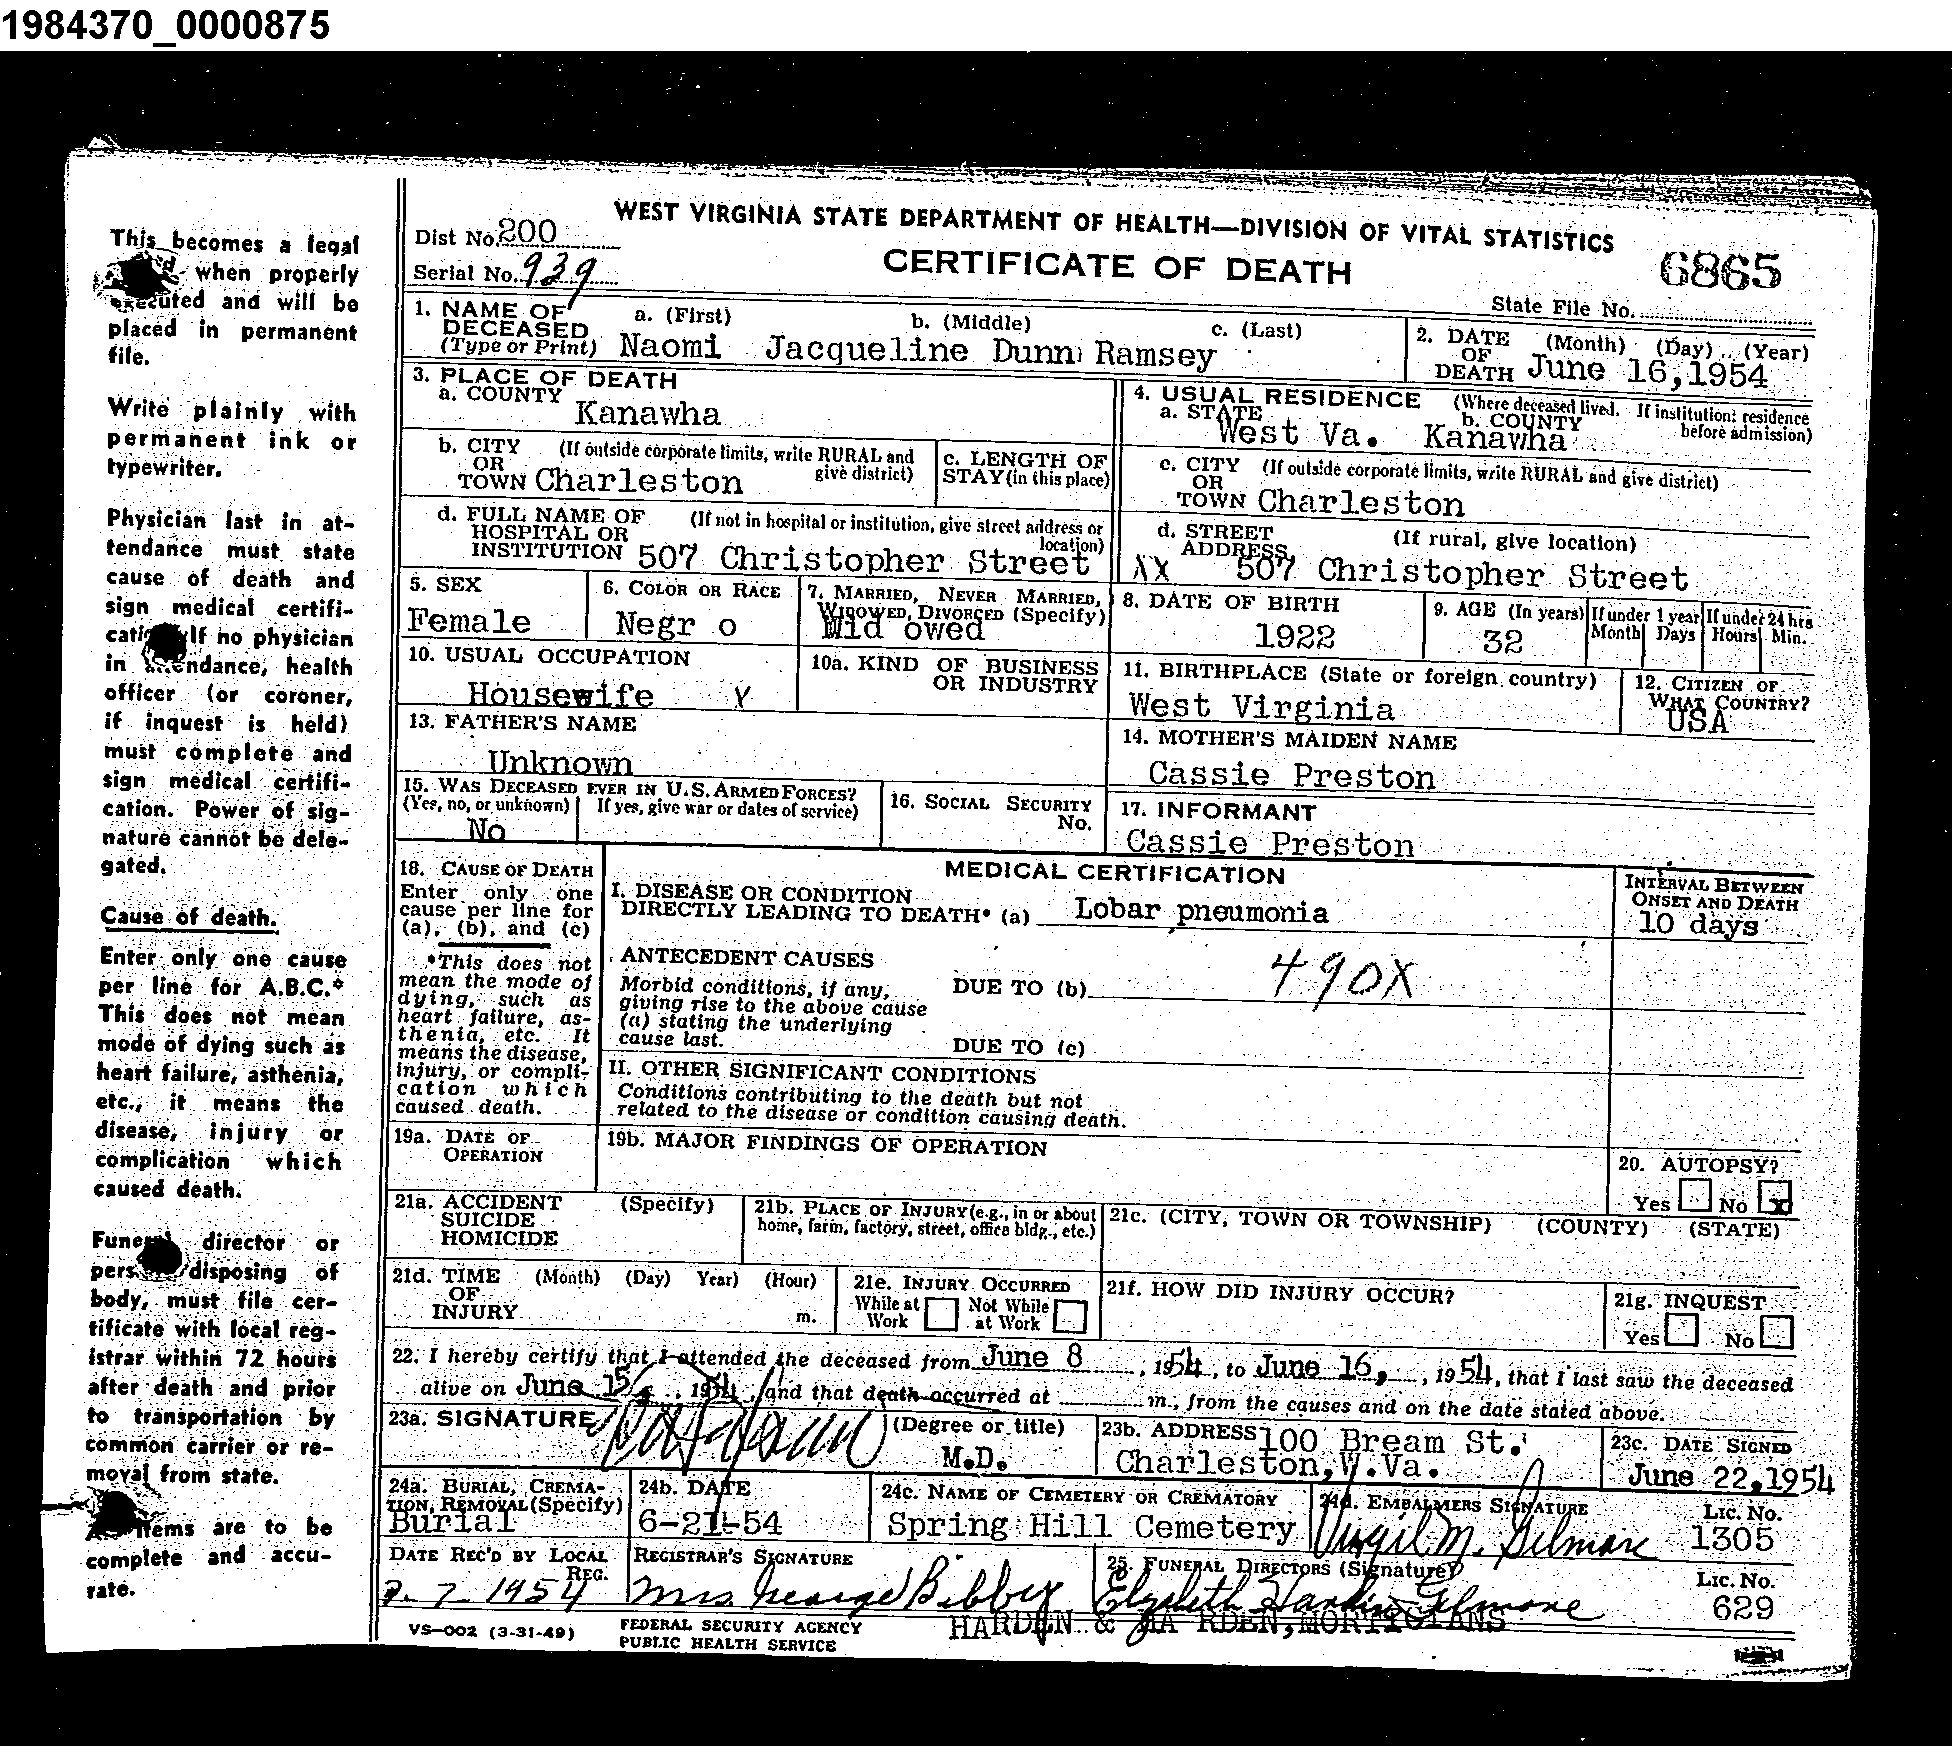 1984370_0000875
This becomes a legal
when properly
executed and will be
placed in permanent
file.
Write plainly with
permanent ink or
typewriter.
Physician last in at-
tendance must state
cause of death and
sign medical certifi-
If no physician
in attendance, health
officer (or coroner,
if inquest is held)
must complete and
sign medical certifi-
cation. Power of sig-
nature cannot be dele-
gated.
Cause of death.
Enter only one cause
per line for A.B.C.*
This does not mean
mode of dying such as
heart failure, asthenia,
etc., it means the
disease, injury or
complication which
caused death.
Funeral director or
disposing of
body, must file cer-
tificate with local reg-
istrar within 72 hours
after death and prior
to transportation by
common carrier or re-
moval from state.
items are to be
complete and accu-
rate.
WEST VIRGINIA STATE DEPARTMENT OF HEALTH—DIVISION OF VITAL STATISTICS
Dist No. 200
CERTIFICATE OF DEATH
6865
Serial No. 939
State File No.
1. NAME OF DECEASED (Type or Print)
a. (First) b. (Middle) c. (Last)
Naomi Jacqueline Dunn Ramsey
2. DATE OF DEATH (Month) (Day) (Year)
June 16,1954
3. PLACE OF DEATH
a. COUNTY
Kanawha
4. USUAL RESIDENCE (Where deceased lived. If institution: residence before admission)
a. STATE b. COUNTY
West Va. Kanawha
b. CITY OR TOWN (If outside corporate limits, write RURAL and give district)
Charleston
c. LENGTH OF STAY (in this place)
c. CITY OR TOWN (If outside corporate limits, write RURAL and give district)
Charleston
d. FULL NAME OF HOSPITAL OR INSTITUTION (If not in hospital or institution, give street address or location)
507 Christopher Street
d. STREET ADDRESS (If rural, give location)
XX 507 Christopher Street
5. SEX
Female
6. COLOR OR RACE
Negr o
7. MARRIED, NEVER MARRIED, WIDOWED, DIVORCED (Specify)
Wid owed
8. DATE OF BIRTH
1922
9. AGE (In years)
32
If under 1 year If under 24 hrs
Month Days Hours Min.
10. USUAL OCCUPATION
Housewife Y
10a. KIND OF BUSINESS OR INDUSTRY
11. BIRTHPLACE (State or foreign country)
West Virginia
12. CITIZEN OF WHAT COUNTRY?
USA
13. FATHER'S NAME
Unknown
14. MOTHER'S MAIDEN NAME
Cassie Preston
15. WAS DECEASED EVER IN U.S. ARMED FORCES?
(Yes, no, or unknown) If yes, give war or dates of service)
No
16. SOCIAL SECURITY No.
17. INFORMANT
Cassie Preston
18. CAUSE OF DEATH
Enter only one
cause per line for
(a), (b), and (c)
*This does not
mean the mode of
dying, such as
heart failure, as-
thenia, etc. It
means the disease,
injury, or compli-
cation which
caused death.
MEDICAL CERTIFICATION
I. DISEASE OR CONDITION
DIRECTLY LEADING TO DEATH* (a) Lobar pneumonia
INTERVAL BETWEEN
ONSET AND DEATH
10 days
ANTECEDENT CAUSES
Morbid conditions, if any,
giving rise to the above cause
(a) stating the underlying
cause last.
DUE TO (b) 490X
DUE TO (c)
II. OTHER SIGNIFICANT CONDITIONS
Conditions contributing to the death but not
related to the disease or condition causing death.
19a. DATE OF OPERATION
19b. MAJOR FINDINGS OF OPERATION
20. AUTOPSY?
Yes No X
21a. ACCIDENT SUICIDE HOMICIDE (Specify)
21b. PLACE OF INJURY (e.g., in or about
home, farm, factory, street, office bldg., etc.)
21c. (CITY, TOWN OR TOWNSHIP) (COUNTY) (STATE)
21d. TIME OF INJURY (Month) (Day) Year) (Hour) m.
21e. INJURY OCCURRED
While at Work Not While at Work
21f. HOW DID INJURY OCCUR?
21g. INQUEST
Yes No
22. I hereby certify that I attended the deceased from June 8, 1954, to June 16, 1954, that I last saw the deceased
alive on June 15, 1954, and that death occurred at m., from the causes and on the date stated above.
23a. SIGNATURE (Degree or title)
M.D.
23b. ADDRESS 100 Bream St.
Charleston,W.Va.
23c. DATE SIGNED
June 22,1954
24a. BURIAL, CREMA-
TION, REMOVAL (Specify)
Burial
24b. DATE
6-21-54
24c. NAME OF CEMETERY OR CREMATORY
Spring Hill Cemetery
24d. EMBALMERS SIGNATURE
Virgil M. Gilmore
LIC. NO.
1305
DATE REC'D BY LOCAL REG.
7-7-1954
REGISTRAR'S SIGNATURE
Mrs. George Bibbey
25. FUNERAL DIRECTORS (Signature)
Elizabeth Harden Gilmore
LIC. NO.
629
HARDEN & HA RDEN,MORTICIANS
VS—002 (3-31-49)
FEDERAL SECURITY AGENCY
PUBLIC HEALTH SERVICE